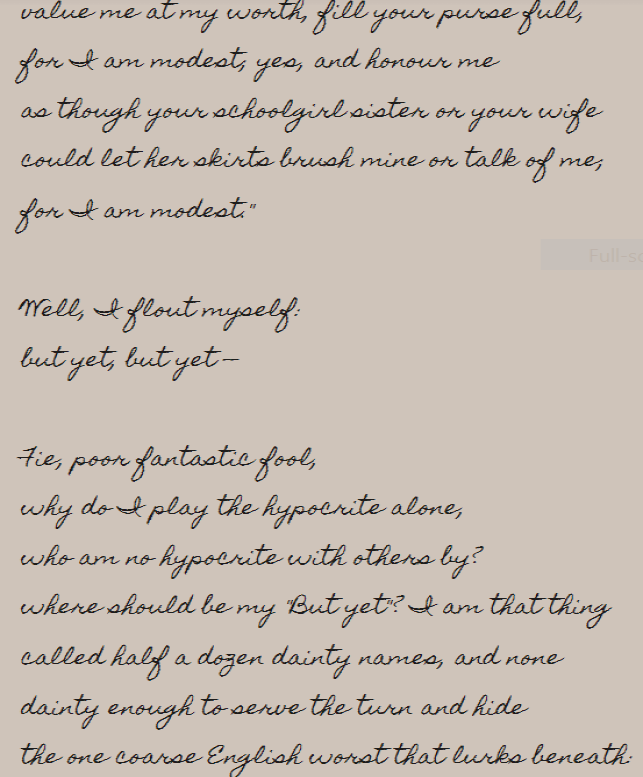 value me at my worth, fill your purse full,
for I am modest; yes, and honour me
as though your schoolgirl sister or your wife
could let her skirts brush mine or talk of me;
for I am modest."
Full-sc
Well, I flout myself:
but yet, but yet—
Fie, poor fantastic fool,
why do I play the hypocrite alone,
who am no hypocrite with others by?
where should be my "But yet"? I am that thing
called half a dozen dainty names, and none
dainty enough to serve the turn and hide
the one coarse English worst that lurks beneath: